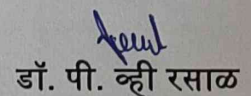 डॉ. पी. व्ही रसाळ